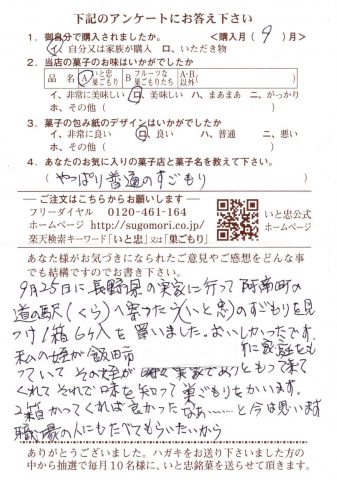 下記のアンケートにお答え下さい
1．御自分で購入されましたか。　<購入月( 9 )月>
イ、自分又は家族が購入　ロ、いただき物
2．当店の菓子のお味はいかがでしたか
品　名　A いと忠巣ごもり　B フルーツな巣ごもりたち　A・B以外（　　）
イ、非常に美味しい　ロ、美味しい　ハ、まあまあ　ニ、がっかり
ホ、その他（　　）
3．菓子の包み紙のデザインはいかがでしたか
イ、非常に良い　ロ、良い　ハ、普通　ニ、悪い
ホ、その他（　　）
4．あなたのお気に入りの菓子店と菓子名を教えて下さい。
（やっぱり普通のすごもり　　）
―ご注文はこちらからお願いします―
フリーダイヤル　0120-461-164
ホームページ　http://sugomori.co.jp/
楽天検索キーワード「いと忠」又は「巣ごもり」
いと忠公式
ホームページ
あなた様がお気づきになられたご意見やご感想をどんな事
でも結構ですのでお書き下さい。
9月25日に長野県の実家に行って阿南町の
道の駅（くら）へ寄ったら（いと忠）のすごもりを見
つけ1箱6ヶ入を買いました。おいしかったです。
私の姪が飯田市　に家庭をも
っていて その姪が 時々 実家であうともって来て
くれて それで味を知って巣ごもりをかいます。
2箱かってくれば良かったなぁ……と今は思います
職場の人にもたべてもらいたいから
ありがとうございました。ハガキをお送り下さいました方の
中から抽選で毎月10名様に、いと忠銘菓を送らせて頂きます。